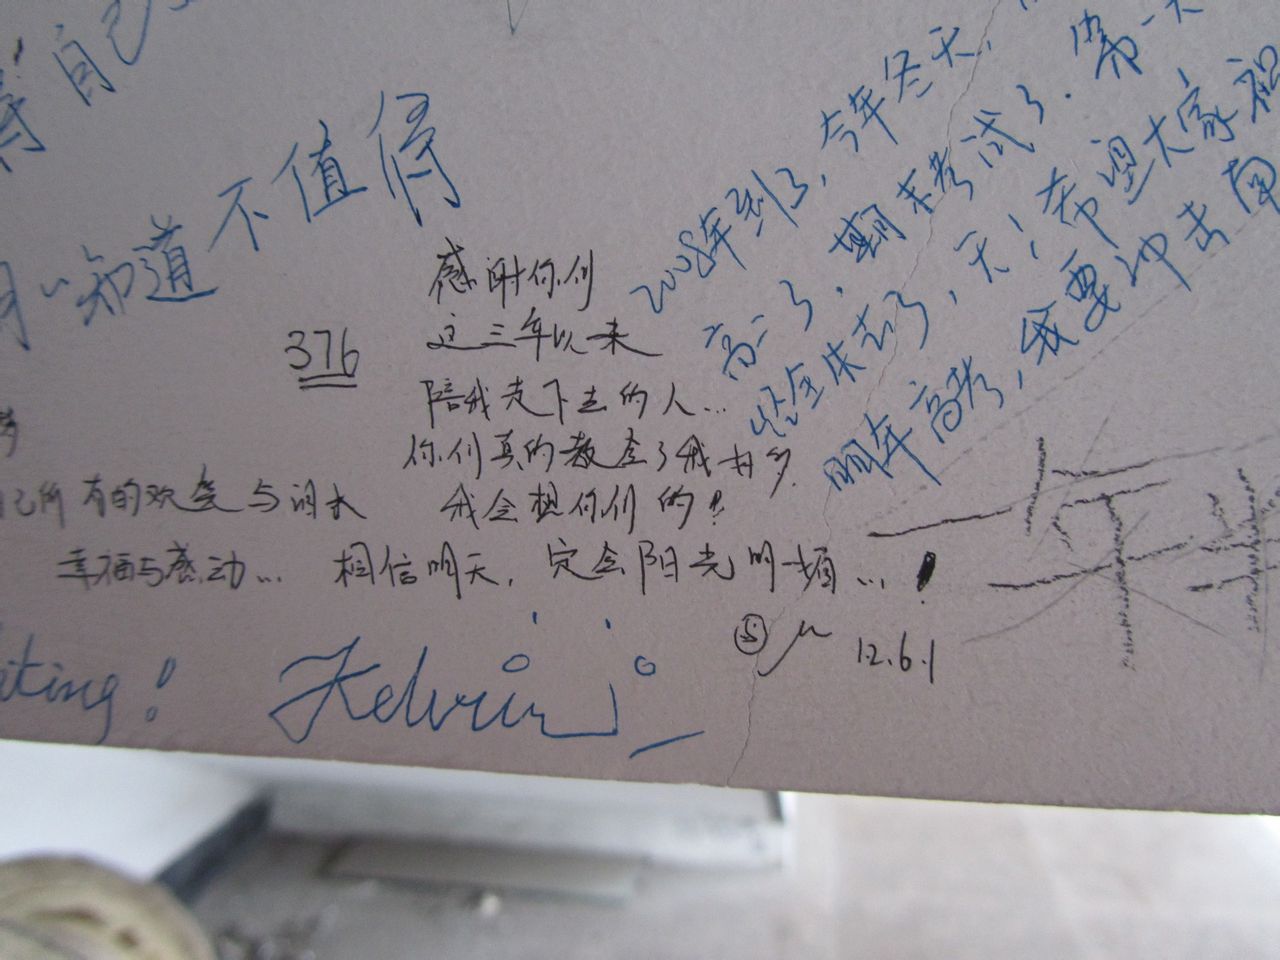 得自己
知道不值得
2008年到了，今年冬天，
高二了，期末考试了．第一天
全失去了，天！希望大家祝
明年高考，我要冲击南
376
感谢你们
这三年以来
陪我走下去的人…
你们真的教会了我好多
我会想你们的！
所有的欢笑与泪水
幸福与感动… 相信明天，定会阳光明媚…！
⑤ 12.6.1
iting! Kelvin